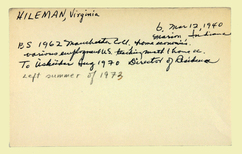 HILEMAN, Virginia
b. Mar 12, 1940
Marion, Indiana
BS 1962 Manchester Coll, home economics.
various employment U.S. teaching math & home ec
To Üsküdar Aug 1970 Director of Residence
left summer of 1973